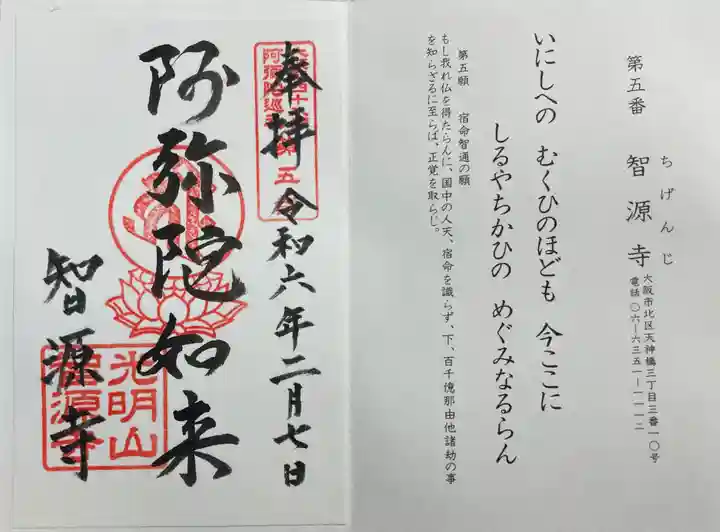 第五番 智源寺
ちげんじ
大阪市北区天神橋三丁目三番一〇号
電話〇六―六三五一―一一一二
いにしへの むくひのほども 今ここに
しるやちかひの めぐみなるらん
第五願 宿命智通の願
もし我れ仏を得たらんに、国中の人天、宿命を識らず、下、百千億那由他諸劫の事
を知らざるに至らば、正覚を取らじ。
奉拝 令和六年二月七日
阿弥陀如来
智源寺
光明山
智源寺